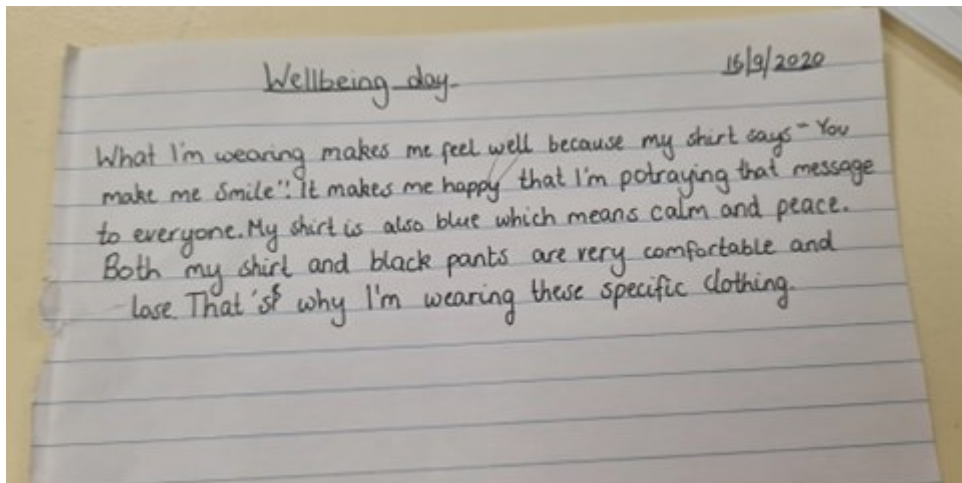 Wellbeing day
15/9/2020
What I'm wearing makes me feel well because my shirt says "You
make me Smile"! It makes me happy that I'm potraying that message
to everyone. My shirt is also blue which means calm and peace.
Both my shirt and black pants are very comfortable and
lose. That's why I'm wearing these specific clothing.